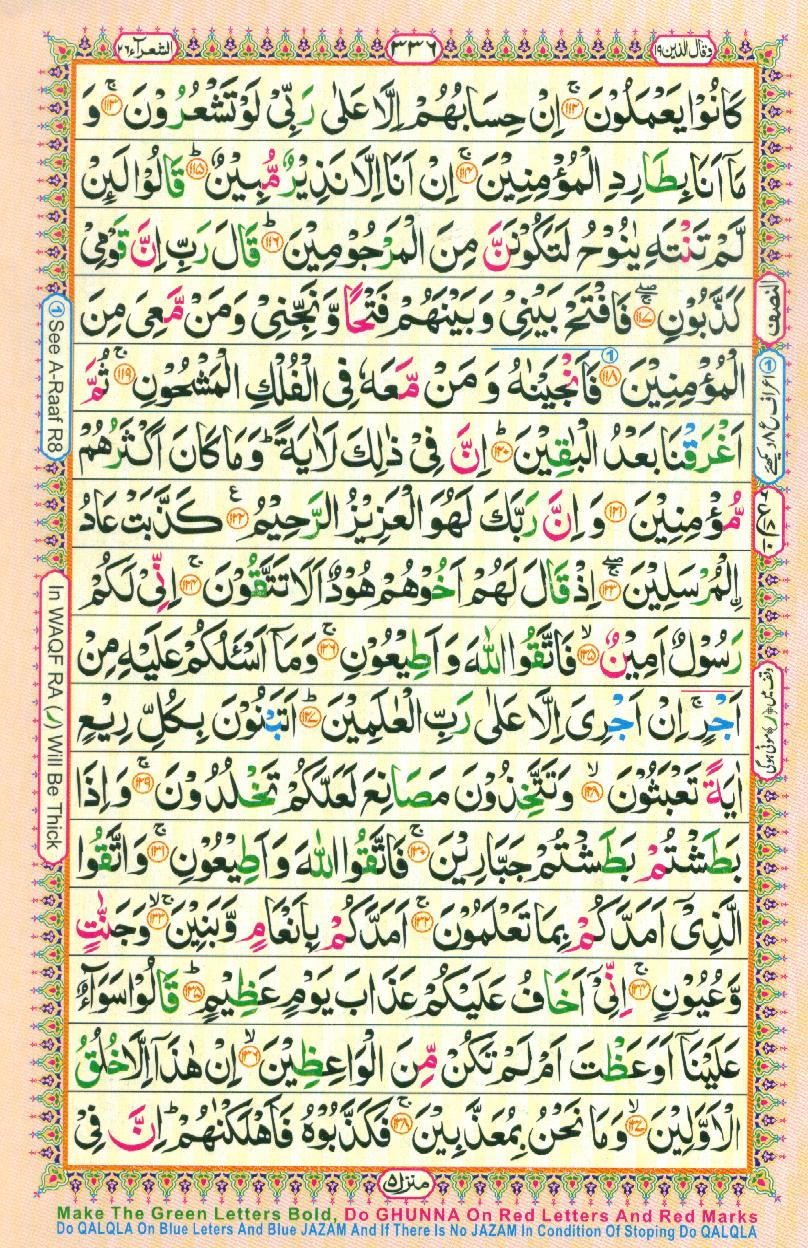 وقال الذين ١٩
٣٣٦
الشعرآء ٢٦
كَانُوۡا يَعۡمَلُوۡنَ ﴿۱۱۲﴾ اِنۡ حِسَابُهُمۡ اِلَّا عَلٰى رَبِّىۡ لَوۡ تَشۡعُرُوۡنَ ﴿۱۱۳﴾ وَ
مَاۤ اَنَا بِطَارِدِ الۡمُؤۡمِنِيۡنَ ﴿۱۱۴﴾ اِنۡ اَنَا اِلَّا نَذِيۡرٌ مُّبِيۡنٌ ﴿۱۱۵﴾ قَالُوۡا لَٮِٕنۡ
لَّمۡ تَنۡتَهِ يٰنُوۡحُ لَتَكُوۡنَنَّ مِنَ الۡمَرۡجُوۡمِيۡنَ ﴿۱۱۶﴾ قَالَ رَبِّ اِنَّ قَوۡمِىۡ
كَذَّبُوۡنِ ﴿۱۱۷﴾ فَافۡتَحۡ بَيۡنِىۡ وَبَيۡنَهُمۡ فَتۡحًا وَّنَجِّنِىۡ وَمَنۡ مَّعِىَ مِنَ
الۡمُؤۡمِنِيۡنَ ﴿۱۱۸﴾ فَاَنۡجَيۡنٰهُ وَ مَنۡ مَّعَهٗ فِى الۡفُلۡكِ الۡمَشۡحُوۡنِ ﴿۱۱۹﴾ ثُمَّ
اَغۡرَقۡنَا بَعۡدُ الۡبٰقِيۡنَ ﴿۱۲۰﴾ اِنَّ فِىۡ ذٰلِكَ لَاٰيَةً ؕ وَمَا كَانَ اَكۡثَرُهُمۡ
مُّؤۡمِنِيۡنَ ﴿۱۲۱﴾ وَ اِنَّ رَبَّكَ لَهُوَ الۡعَزِيۡزُ الرَّحِيۡمُ ﴿۱۲۲﴾ كَذَّبَتۡ عَادُ
اۨلۡمُرۡسَلِيۡنَ ﴿۱۲۳﴾ اِذۡ قَالَ لَهُمۡ اَخُوۡهُمۡ هُوۡدٌ اَلَا تَتَّقُوۡنَ ﴿۱۲۴﴾ اِنِّىۡ لَكُمۡ
رَسُوۡلٌ اَمِيۡنٌ ﴿۱۲۵﴾ فَاتَّقُوا اللّٰهَ وَ اَطِيۡعُوۡنِ ﴿۱۲۶﴾ وَمَاۤ اَسۡـَٔلُكُمۡ عَلَيۡهِ مِنۡ
اَجۡرٍ ۚ اِنۡ اَجۡرِىَ اِلَّا عَلٰى رَبِّ الۡعٰلَمِيۡنَ ﴿۱۲۷﴾ اَتَبۡنُوۡنَ بِكُلِّ رِيۡعٍ
اٰيَةً تَعۡبَثُوۡنَ ﴿۱۲۸﴾ وَتَتَّخِذُوۡنَ مَصَانِعَ لَعَلَّكُمۡ تَخۡلُدُوۡنَ ﴿۱۲۹﴾ وَاِذَا
بَطَشۡتُمۡ بَطَشۡتُمۡ جَبَّارِيۡنَ ﴿۱۳۰﴾ فَاتَّقُوا اللّٰهَ وَ اَطِيۡعُوۡنِ ﴿۱۳۱﴾ وَاتَّقُوا
الَّذِىۡۤ اَمَدَّكُمۡ بِمَا تَعۡلَمُوۡنَ ﴿۱۳۲﴾ اَمَدَّكُمۡ بِاَنۡعَامٍ وَّبَنِيۡنَ ﴿۱۳۳﴾ وَجَنّٰتٍ
وَّعُيُوۡنٍ ﴿۱۳۴﴾ اِنِّىۡۤ اَخَافُ عَلَيۡكُمۡ عَذَابَ يَوۡمٍ عَظِيۡمٍ ﴿۱۳۵﴾ قَالُوۡا سَوَآءٌ
عَلَيۡنَاۤ اَوَعَظۡتَ اَمۡ لَمۡ تَكُنۡ مِّنَ الۡوَاعِظِيۡنَ ﴿۱۳۶﴾ اِنۡ هٰذَاۤ اِلَّا خُلُقُ
الۡاَوَّلِيۡنَ ﴿۱۳۷﴾ وَمَا نَحۡنُ بِمُعَذَّبِيۡنَ ﴿۱۳۸﴾ فَكَذَّبُوۡهُ فَاَهۡلَكۡنٰهُمۡ ؕ اِنَّ فِىۡ
النصف
① See A-Raaf R8
In WAQF RA (ر) Will Be Thick
منزل ۵
Make The Green Letters Bold, Do GHUNNA On Red Letters And Red Marks
Do QALQLA On Blue Leters And Blue JAZAM And If There Is No JAZAM In Condition Of Stoping Do QALQLA